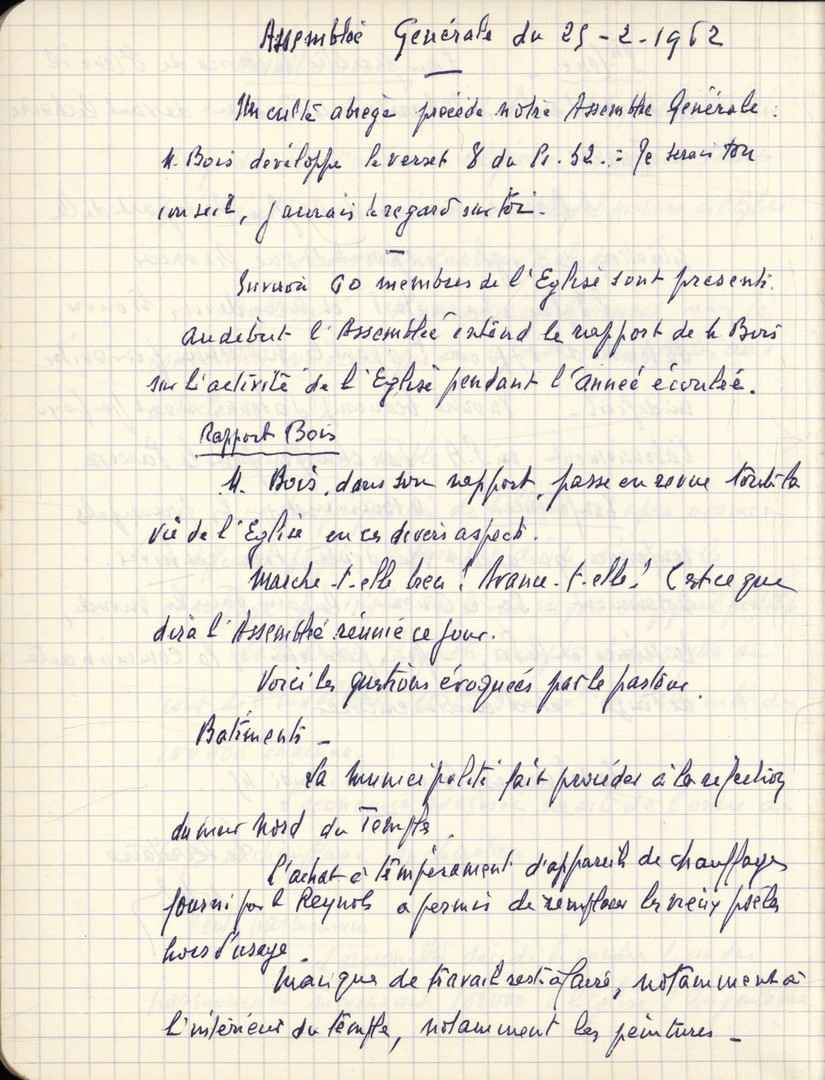 Assemblée Générale du 25-2-1962
Un culte abrégé précède notre Assemblée Générale.
M. Bois développe le verset 8 du Ps. 32. = Je serai ton
conseil, j'aurais le regard sur toi.
Environ 60 membres de l'Eglise sont présents.
Au début l'Assemblée entend le rapport de M Bois
sur l'activité de l'Eglise pendant l'année écoulée.
Rapport Bois
M. Bois, dans son rapport, passe en revue toute la
vie de l'Eglise en ces divers aspects.
Marche-t-elle bien! Avance-t-elle! C'est ce que
dira l'Assemblée réunie ce jour.
Voici les questions évoquées par le pasteur.
Batiments -
La Municipalité fait procéder à la refection
du mur Nord du Temple.
L'achat à tempérament d'appareils de chauffages
fourni par M Reynols a permis de remplacer les vieux poêles
hors d'usage.
Manque de travail reste à faire, notamment à
l'intérieur du temple, notamment les peintures -